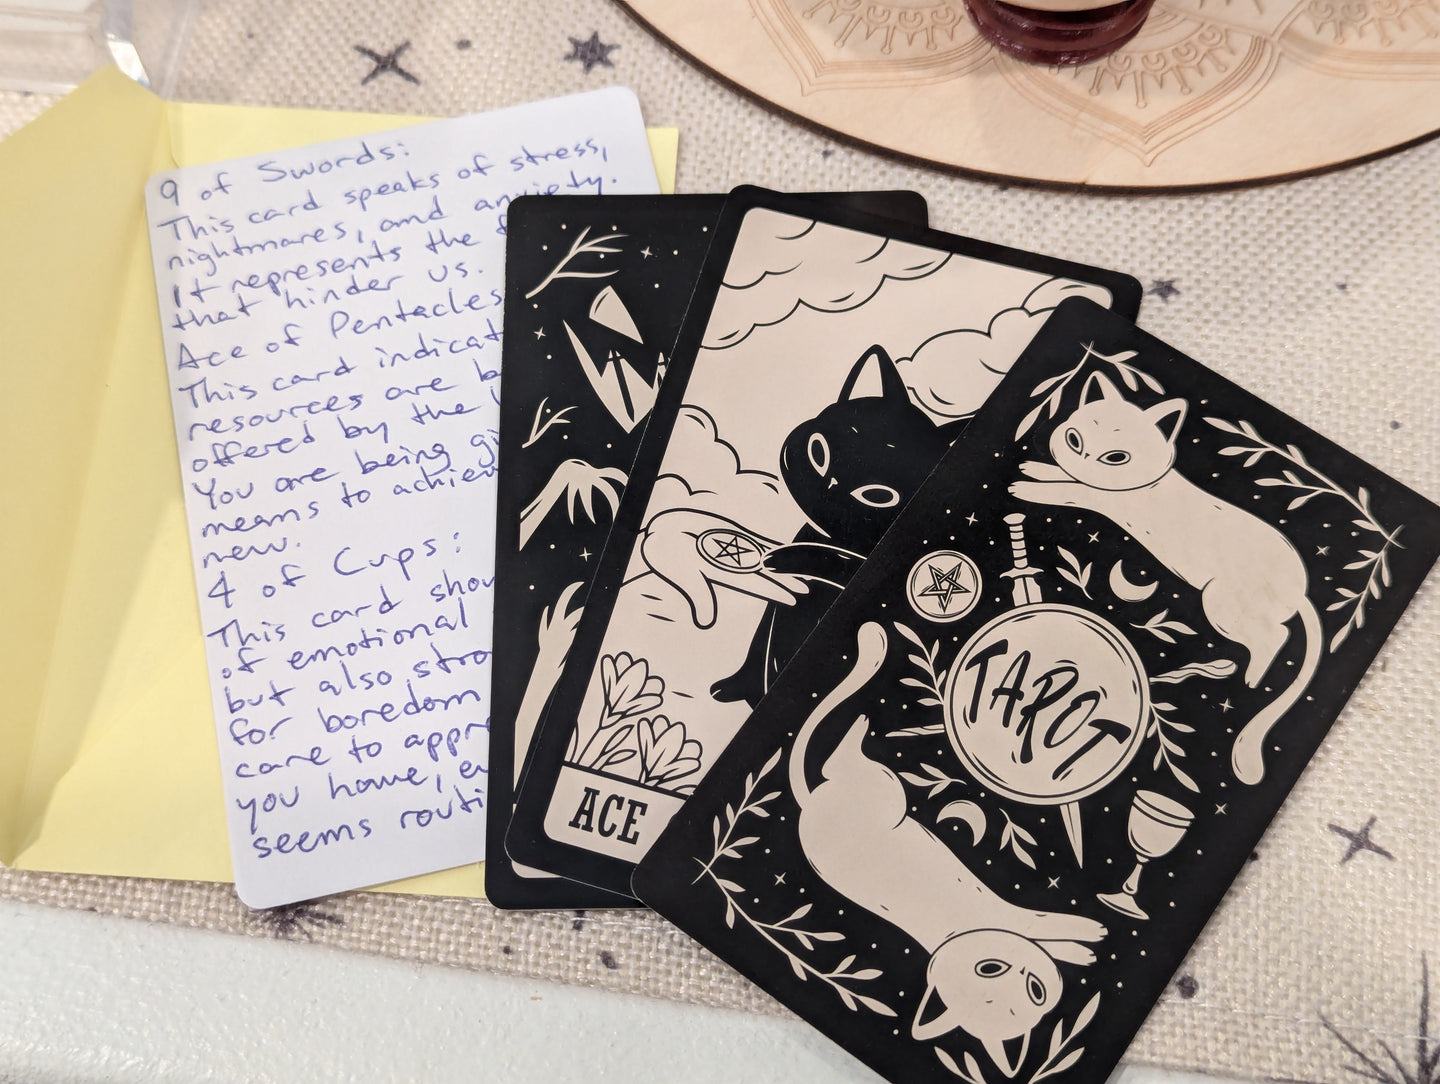 9 of Swords:
This card speaks of stress,
nightmares, and anxiety.
It represents the
that hinder us.
Ace of Pentacles
This card
resources are
offered by the
You are being
means to
new.
4 of Cups:
This card
of emotional
but also
for boredom
care to
you home,
seems
ACE
TAROT